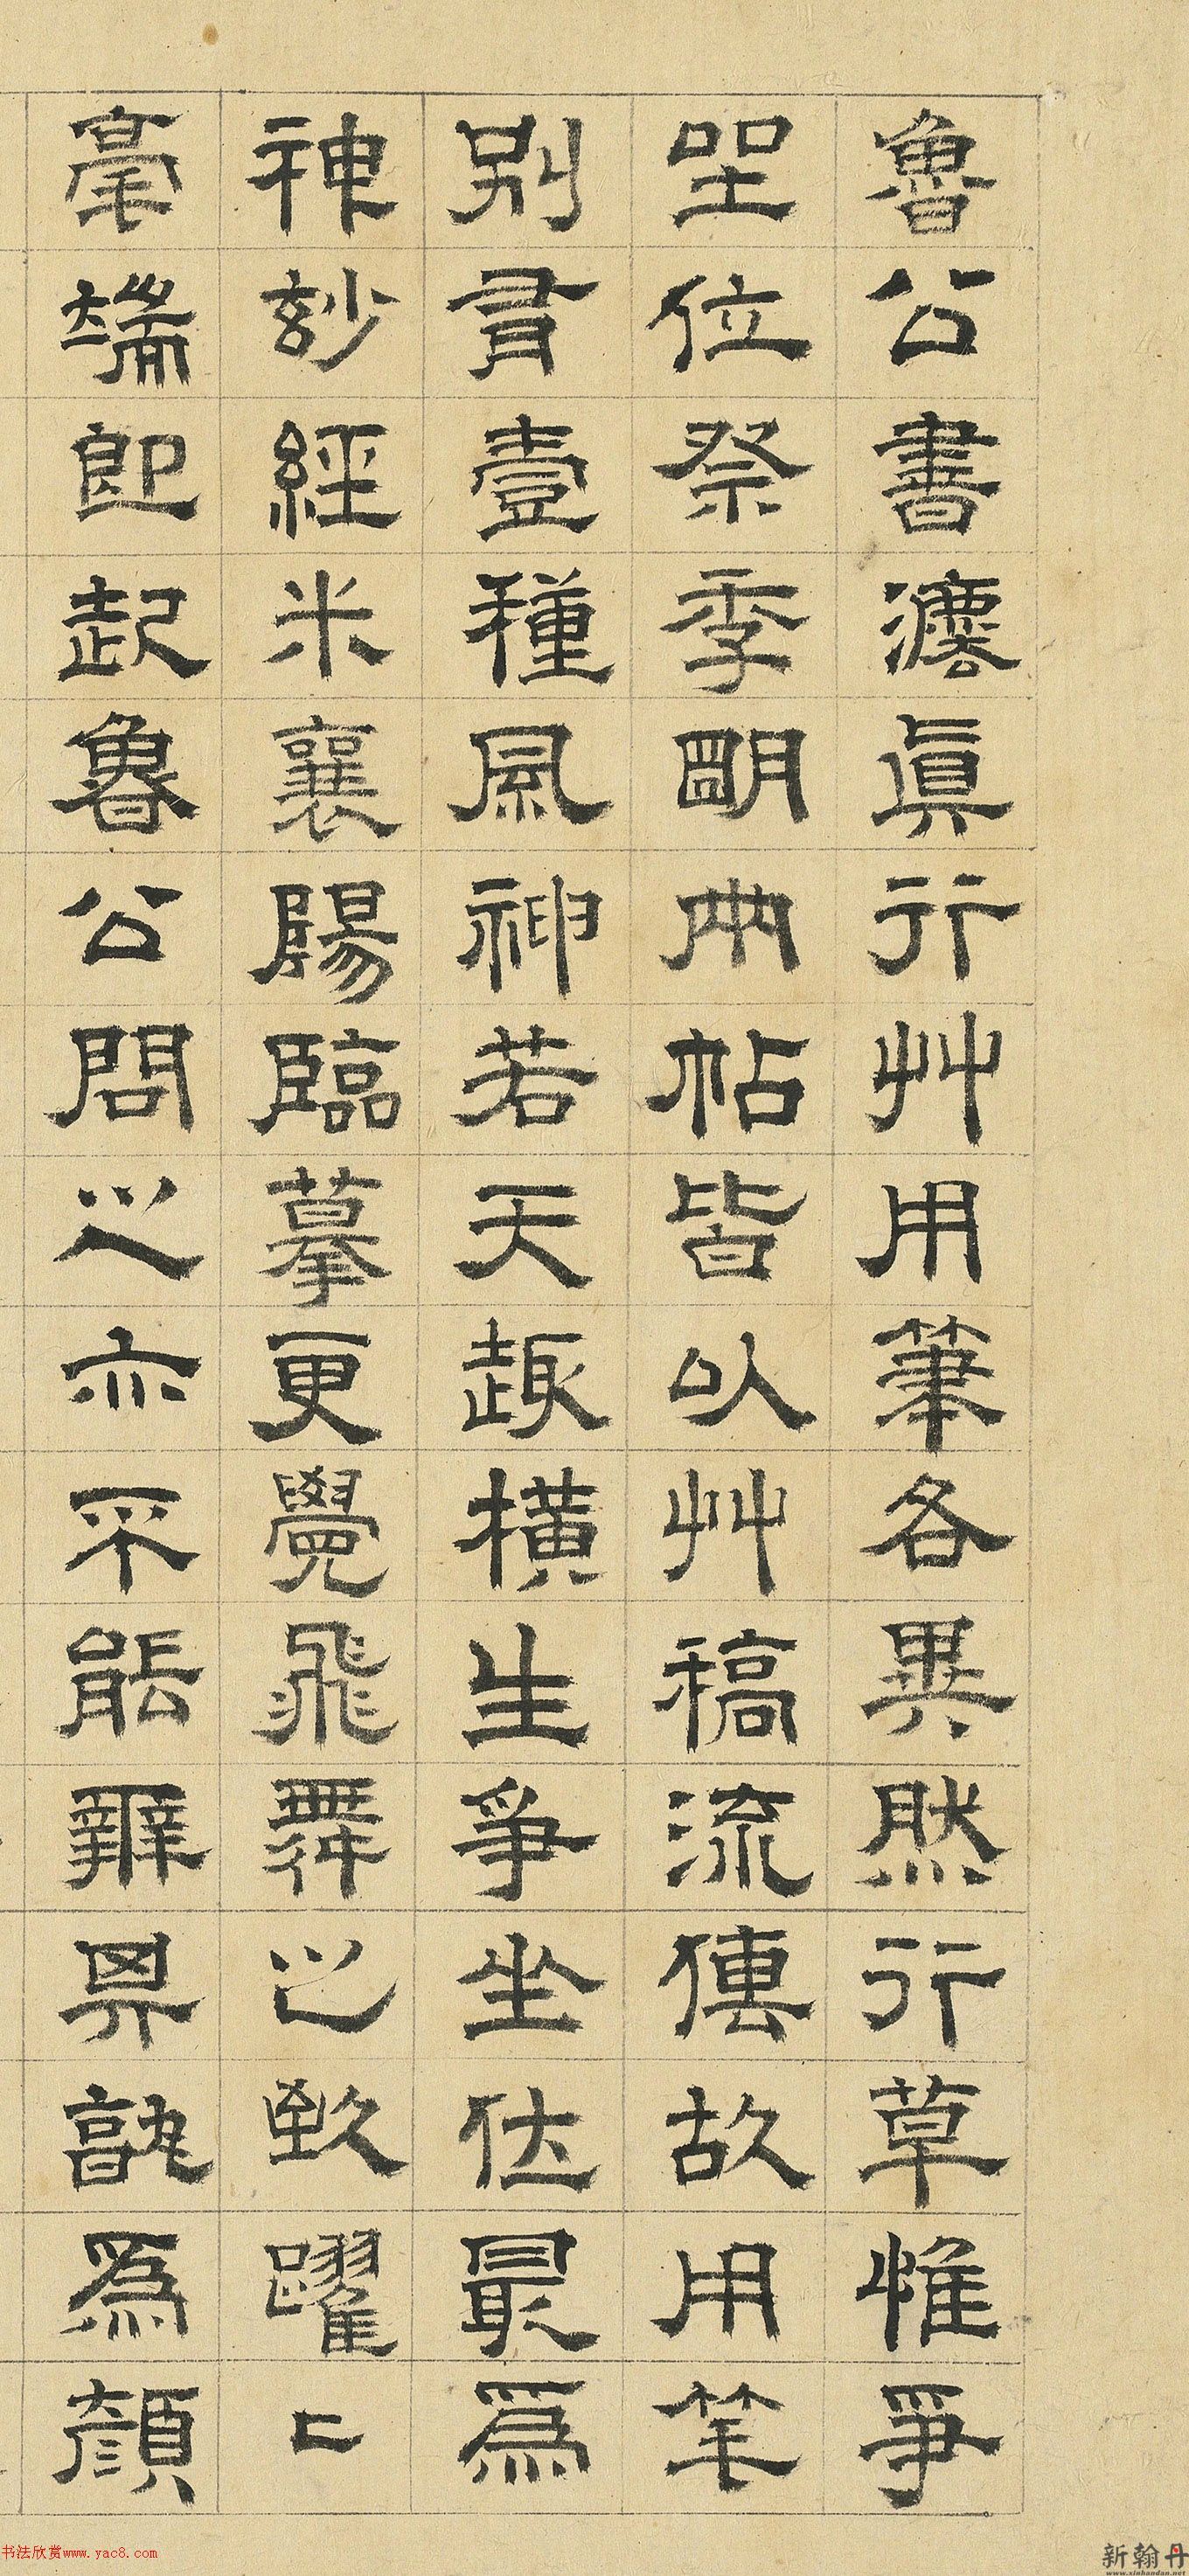 魯公書灋眞行艸用筆各異然行草惟爭
坐位祭季朙兩帖皆以艸稿流傳故用笔
別有壹種風神若天趣橫生爭坐位最爲
神妙經米襄陽臨摹更覺飛舞之致躍〻
毫端即起魯公問之亦不能辨其孰爲顏
书法欣赏www.yac8.com
新翰丹
www.xinhandan.net